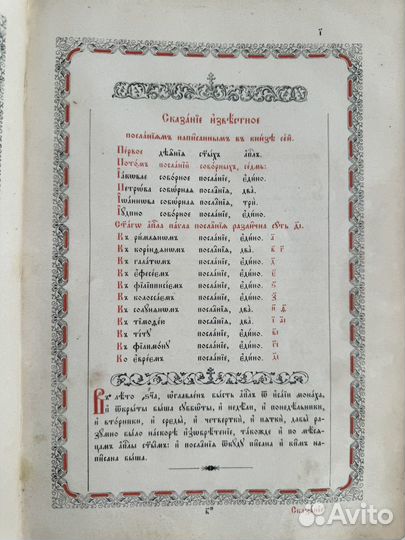 ї
Сказанїе извѣстное
посланїямъ написаннымъ въ книзѣ сей.
Первое дѣянїя ст҃ыхъ ап҃лъ.
Потомъ посланїй соборныхъ, седмь:
Іаковле соборное посланїе, едино.
Петрѡва собѡрная посланїя, два.
Іѡаннѡва собѡрная посланїя, три.
Іудино соборное посланїе, едино.
Ст҃агѡ ап҃ла паѵла посланїя различна суть д҃і.
Къ римлянѡмъ посланїе, едино. а҃
Къ корінѳянѡмъ посланїя, два. в҃ г҃
Къ галатѡмъ посланїе, едино. д҃
Къ ефесеемъ посланїе, едино. є҃
Къ філіппісеемъ посланїе, едино. ѕ҃
Къ колоссаемъ посланїе, едино. з҃
Къ солунянѡмъ посланїя, два. и҃ ѳ҃
Къ тімоѳею посланїя, два. і҃ а҃і
Къ тіту посланїе, едино. в҃і
Къ філимону посланїе, едино. г҃і
Ко евреемъ посланїе, едино. д҃і
Въ лѣто ѡглавленъ бысть ап҃лъ ѿ исаїи монаха,
и ѿкрыты быша суббѡты, и недѣли, и понедѣльники,
и вторники, и среды, и четвертки, и пятки, дабы ра-
зумно было наскорѣ изѡбрѣтенїе, такожде и по мѣся-
цамъ ап҃лы ст҃ымъ: и посланїя ѿкуду писана и кимъ на-
писана быша.
Сказанїе
Avito